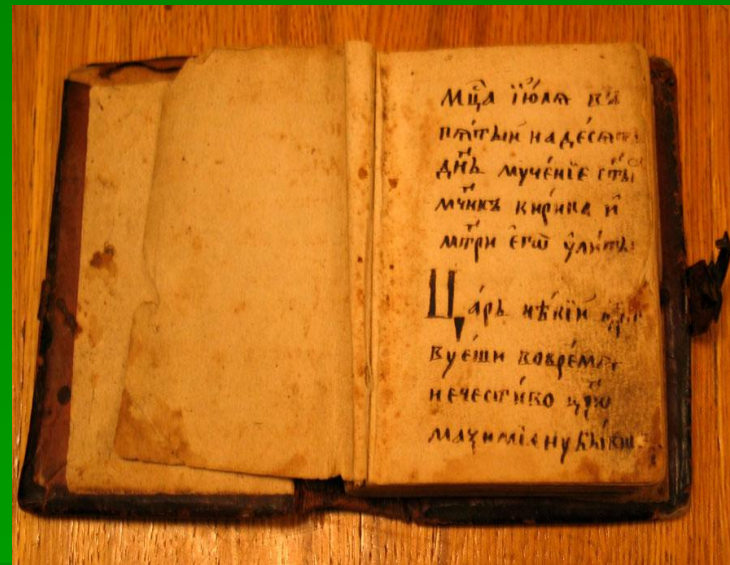 мц҃а і҆ю́лѧ въ
пѧ́тый надесѧть
дн҃ь муче́нїе ст҃ы
мч҃икъ ки́рика и҆
мт҃ри є҆гѡ̀ ѹ҆ли́ты
Ца́рь нѣ́кїй
ву є҆́ши вовре́мѧ
нечести́во цр҃ю
маѯимїѧну бы́вш